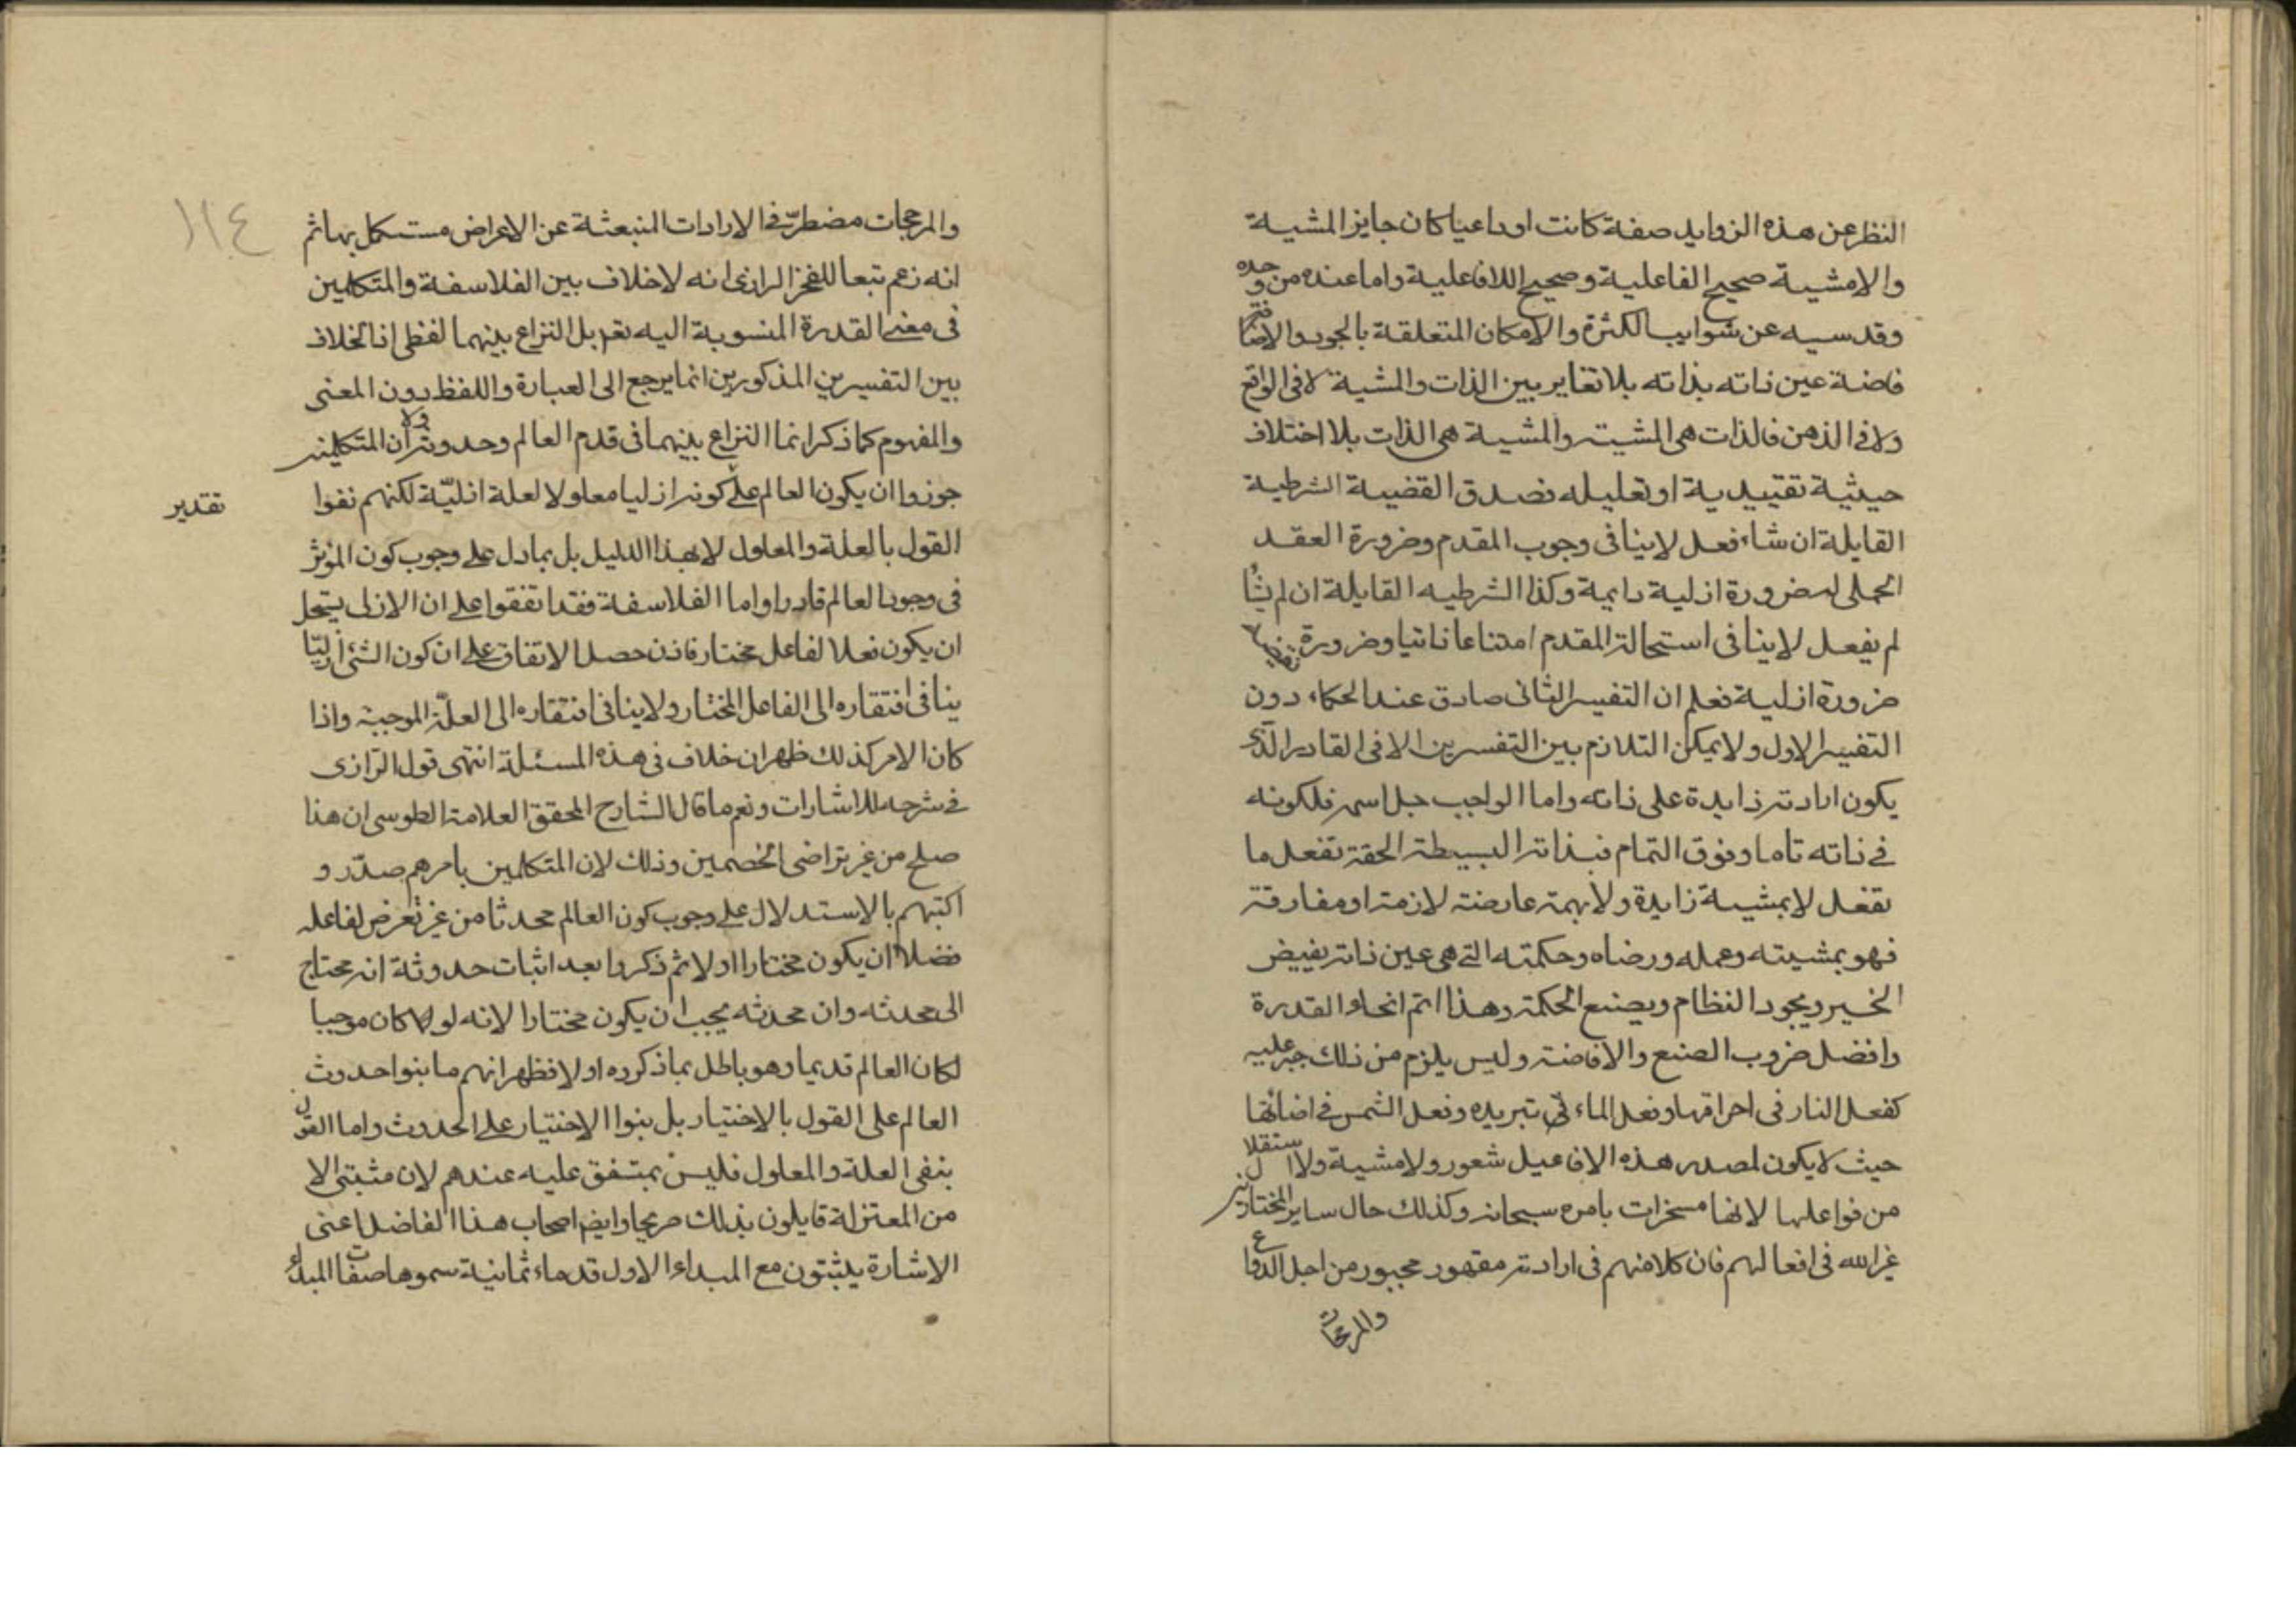 النظر عن هذه الزوايد صفة كانت اوداعيا كان جايز المشية
والامشية صحيح الفاعلية وصحيح اللافاعلية واما عنده من وحده
وقدسيه عن شوايب الكثرة والامكان المتعلقة بالجود والافا
فاضة عين ذاته بذاته بلا تغاير بين الذات والمشية لا فى الواقع
ولا فى الذهن فالذات هى المشيته والمشية هى الذات بلا اختلاف
حيثية تقييدية او تعليله فصدق القضية الشرطية
القايلة ان شاء فعل لا ينافى وجوب المقدم وضرورة العقد
الحملى له ضرورة ازلية دايمة وكذا الشرطيه القايلة ان لم يشأ
لم يفعل لا ينافى استحالة المقدم امتناعا ذاتيا وضرورة نقيضه
ضرورة ازلية فعلم ان التفسير الثانى صادق عند الحكماء دون
التفسير الاول ولا يمكن التلازم بين التفسرين الا فى القادر الذى
يكون ارادته زايدة على ذاته واما الواجب جل اسمه فلكونه
فى ذاته تاما وفوق التمام فبذاته البسيطة الحقة تفعل ما
تفعل لا بمشية زايدة ولا بهمة عارضة لازمة او مفارقة
فهو بمشيته وعمله ورضاه وحكمته التى هى عين ذاته يفيض
الخير ويجود النظام ويصنع الحكمة وهذا اتم انحاء القدرة
وافضل ضروب الصنع والافاضة وليس يلزم من ذلك جبر عليه
كفعل النار فى احراقها وفعل الماء فى تبريده وفعل الشمس فى اضائتها
حيث لا يكون لمصدر هذه الافاعيل شعور ولا مشية ولا استقلال
من فواعلها لانها مسخرات بامره سبحانه وكذلك حال ساير المختارين
غير الله فى افعالهم فان كلا منهم فى ارادته مقهور مجبور من اجل الدواعى
والمرجحات
١١٤
والمرجحات مضطر فى الارادات المنبعثة عن الاعراض مستكمل بها ثم
انه زعم تبعا للفخر الرازى انه لا خلاف بين الفلاسفة والمتكلمين
فى معنى القدرة المنسوبة اليه تعم بل النزاع بينهما لفظى اذا لخلاف
بين التفسيرين المذكورين انما يرجع الى العبارة واللفظ دون المعنى
والمفهوم كما ذكر انما النزاع بينهما فى قدم العالم وحدوثه ولا ان المتكلمين
جوزوا ان يكون العالم على كونه ازليا معلولا لعلة ازليّة لكنهم نفوا
تقدير
القول بالعلة والمعلول لا بهذا الدليل بل بما دل على وجوب كون المؤثر
فى وجود العالم قادرا واما الفلاسفة فقد اتفقوا على ان الازلى يستحل
ان يكون فعلا لفاعل مختار فاذن حصل الاتفاق على ان كون الشئ ازليّا
ينافى افتقاره الى الفاعل المختار ولا ينافى افتقاره الى العلّة الموجبة واذا
كان الامر كذلك ظهر ان خلاف فى هذه المسئلة انتهى قول الرازى
فى شرحه للاشارات ونعم ما قال الشارح المحقق العلامة الطوسى ان هذا
صلح من غير تراضى الخصمين وذلك لان المتكلمين باسرهم صدّر و
اكتبهم بالاستدلال على وجوب كون العالم محدثا من غير تعرض لفاعله
فضلا ان يكون مختارا اولا ثم ذكروا بعد اثبات حدوثة انه محتاج
الى محدثه وان محدثه يجب ان يكون مختارا لانه لو كان موجبا
لكان العالم قديما وهو باطل بما ذكروه اولا فظهر انهم ما بنوا حدوث
العالم على القول بالاختيار بل بنوا الاختيار على الحدوث واما القول
بنفى العلة والمعلول فليس بمتفق عليه عندهم لان مثبتى الا
من المعتزلة قايلون بذلك صريحا وايضا اصحاب هذا الفاضل اعنى
الاشارة يثبتون مع المبداء الاول قدماء ثمانية سموها صفات المبداء